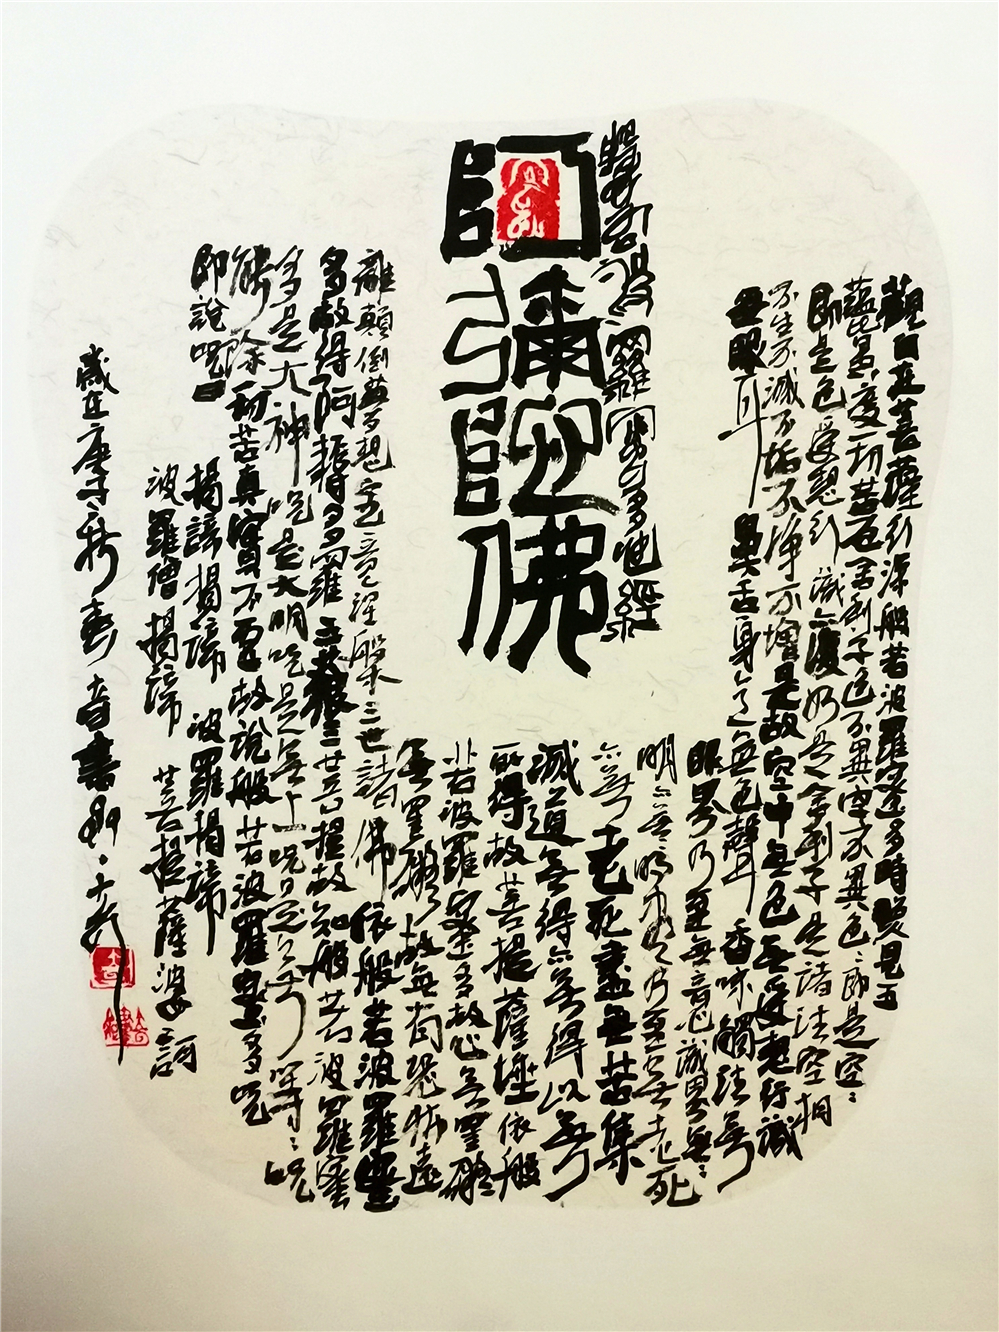 阿彌陀佛
般若波羅蜜多心經
觀自在菩薩行深般若波羅蜜多時照見五
蘊皆空度一切苦厄舍利子色不異空空不異色色即是空空
即是色受想行識亦復如是舍利子是諸法空相
不生不滅不垢不淨不增不減是故空中無色無受想行識
無眼耳鼻舌身意無色聲香味觸法無
眼界乃至無意識界無無
明亦無無明盡乃至無老死
亦無老死盡無苦集
滅道無智亦無得以無
所得故菩提薩埵依般
若波羅蜜多故心無罣礙
無罣礙故無有恐怖遠
離顛倒夢想究竟涅槃三世諸佛依般若波羅蜜
多故得阿耨多羅三藐三菩提故知般若波羅蜜
多是大神咒是大明咒是無上咒是無等等咒
能除一切苦真實不虛故說般若波羅蜜多咒
即說咒曰
揭諦揭諦 波羅揭諦
波羅僧揭諦 菩提薩婆訶
歲在庚子秋